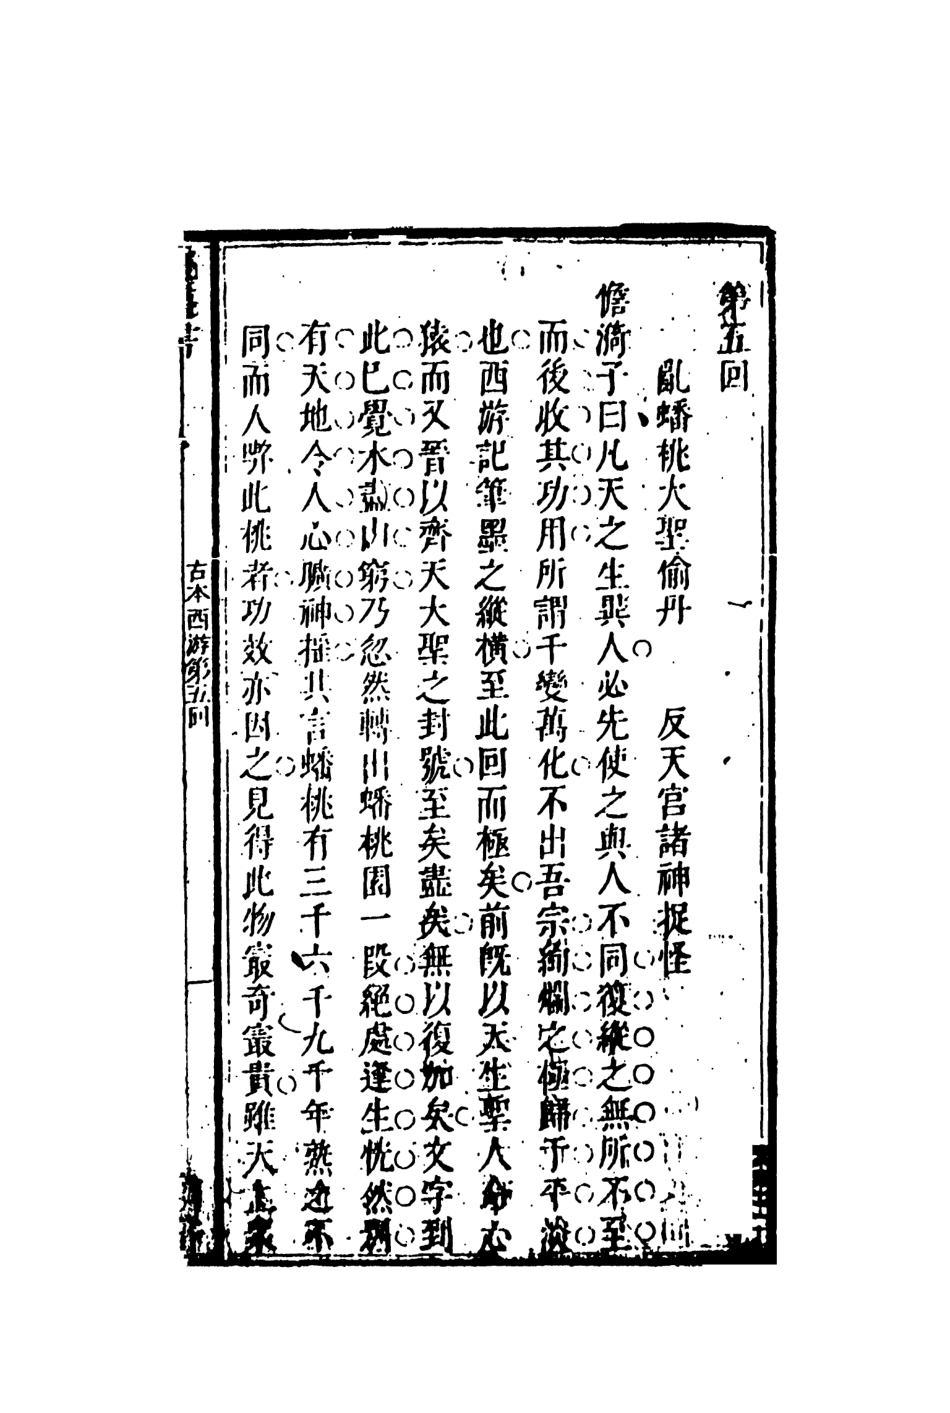 第五回
亂蟠桃大聖偷丹　反天宮諸神捉怪
憺漪子曰凡天之生異人必先使之與人不同復縱之無所不至
而後收其功用所謂千變萬化不出吾宗絢爛之極歸于平淡
也西游記筆墨之縱橫至此回而極矣前既以天生聖人命心
猿而又晉以齊天大聖之封號至矣盡矣無以復加矣文字到
此已覺水盡山窮乃忽然轉出蟠桃園一段絕處逢生恍然別
有天地令人心曠神搖其言蟠桃有三千六千九千年熟之不
同而人喫此桃者功效亦因之見得此物最奇最貴雖天上
古本西游第五回